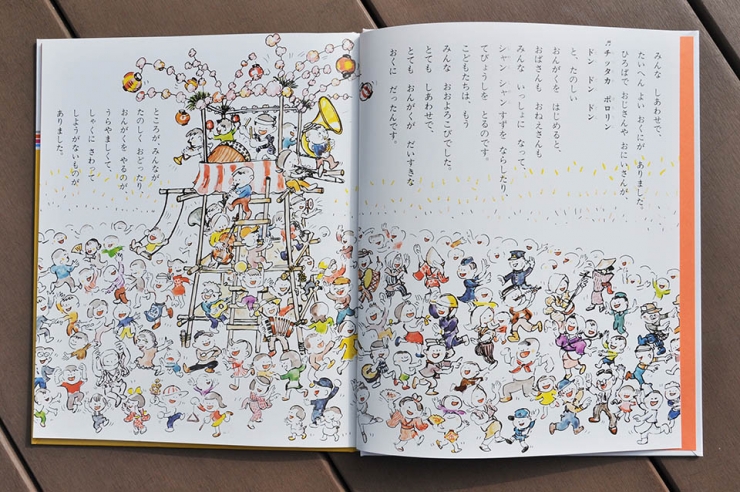 みんな しあわせで、
たいへん よい おくにが ありました。
ひろばで おじさんや おにいさんが、
♬チッタカ ポロリン
ドン ドン ドン
と、たのしい
おんがくを はじめると、
おばさんも おねえさんも
みんな いっしょに なって、
シャン シャン すずを ならしたり、
てびょうしを とるのです。
こどもたちは、もう
みんな おおよろこびでした。
とても しあわせで、
とても おんがくが だいすきな
おくに だったんです。
ところが、みんなが
たのしく おどったり
おんがくを やるのが
うらやましくて
しゃくに さわって
しようがないものが
ありました。